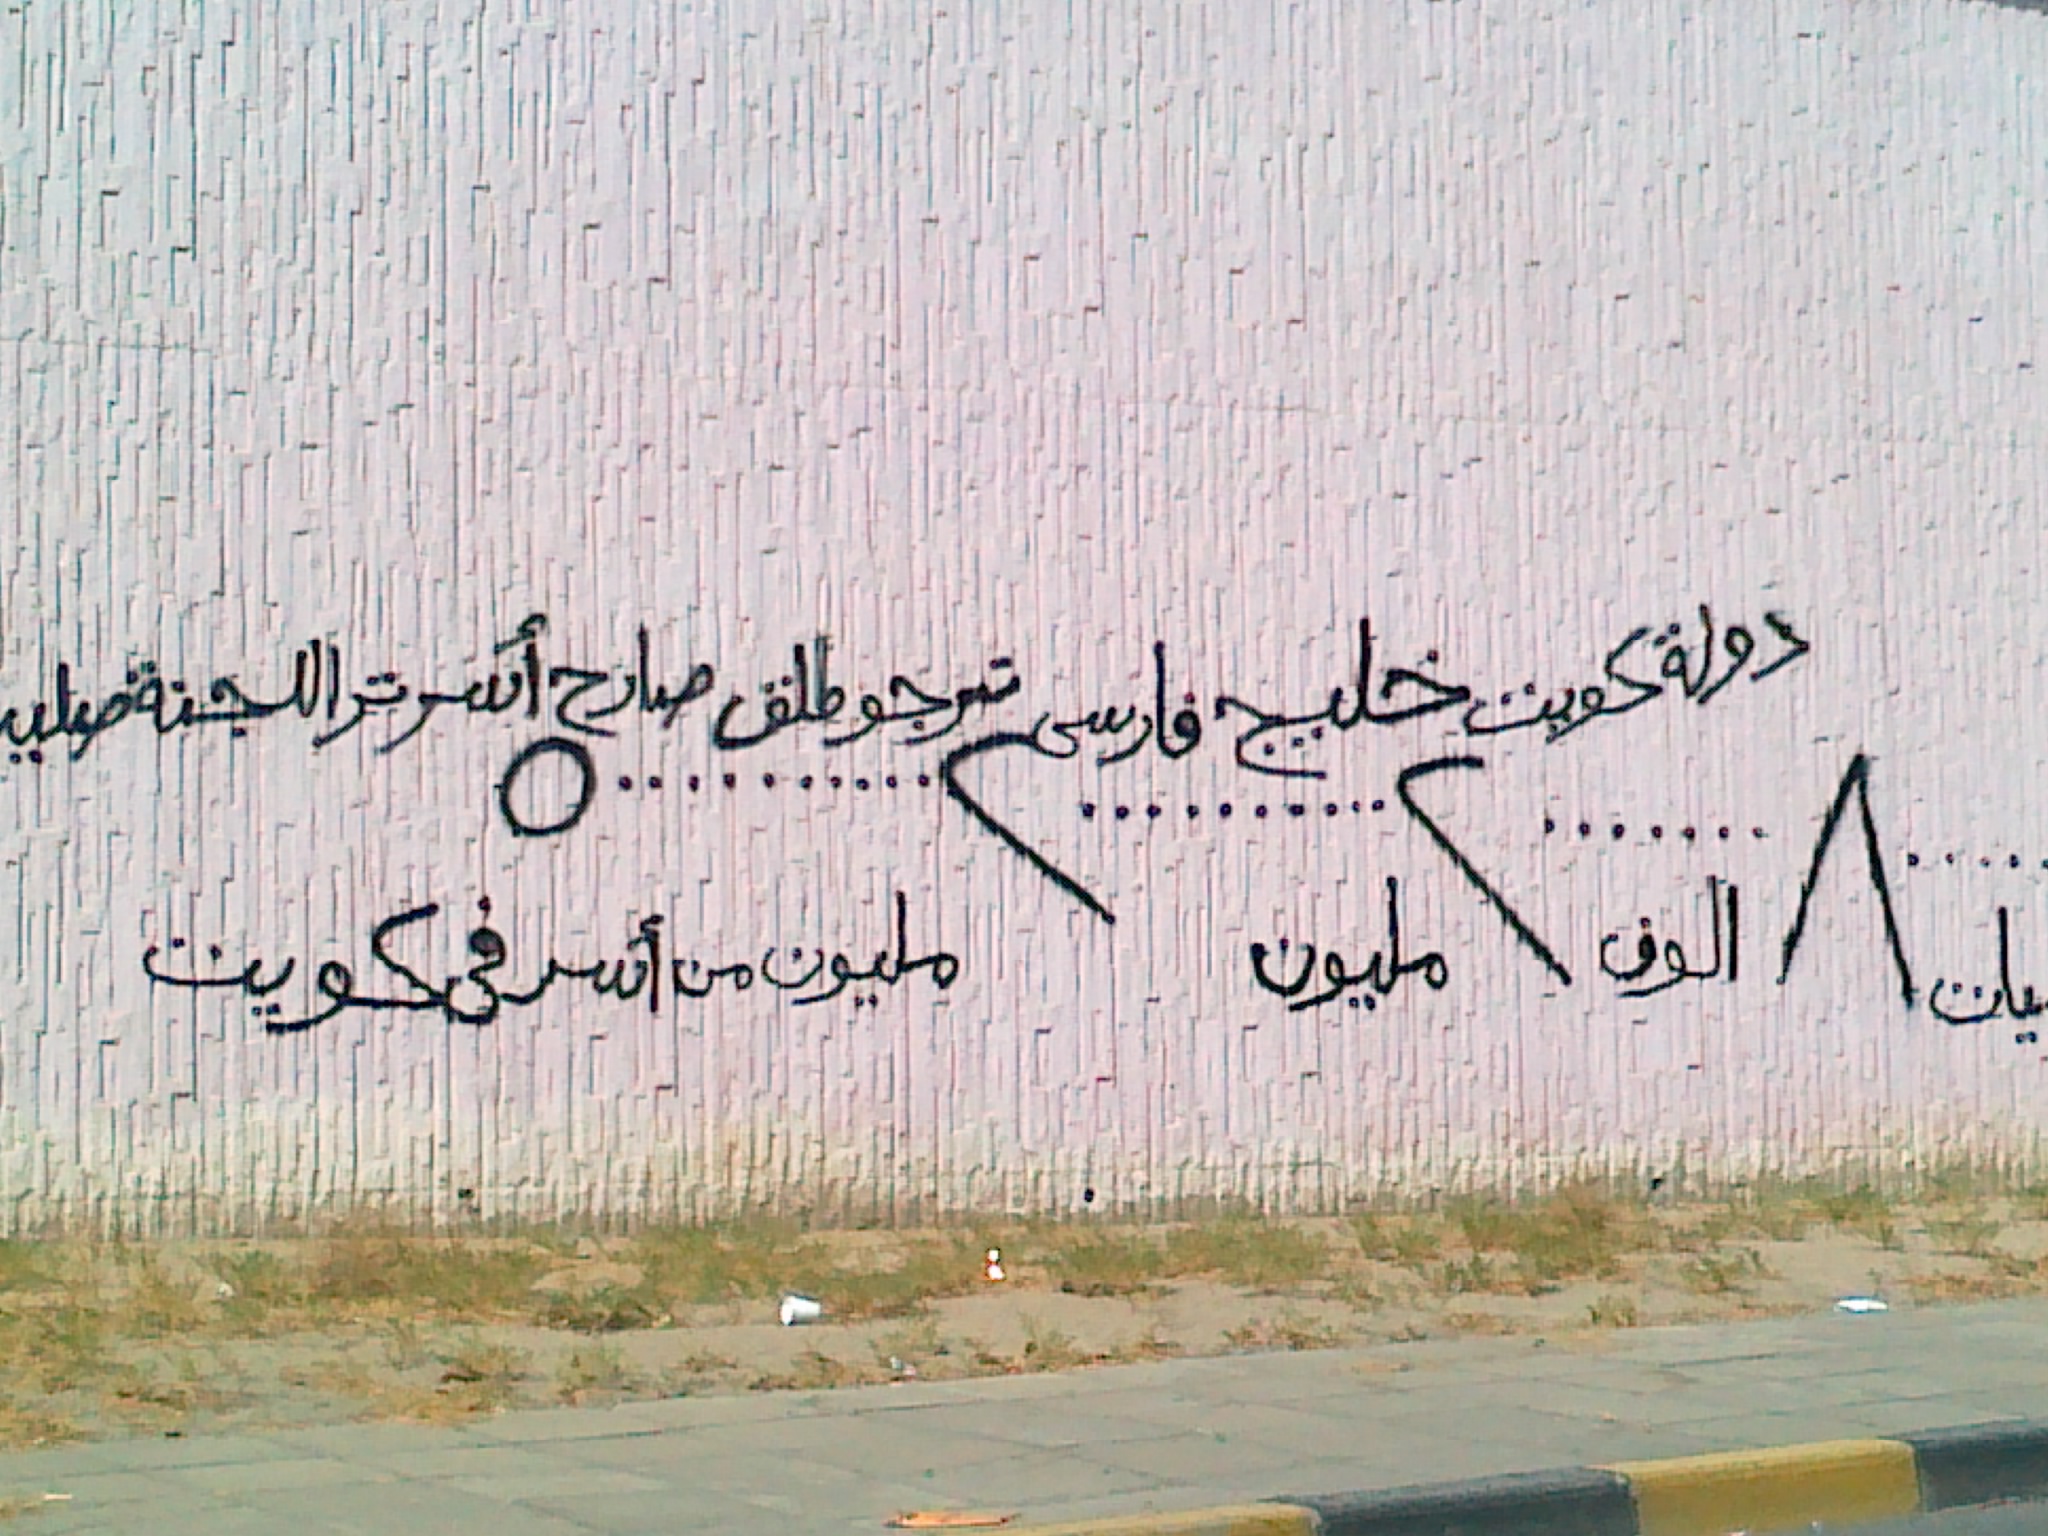 دولة كويت خليج فارسى ترجو طلق صارح أسر تر اللجنة صليب
٨ ٢ ٢ ٥
الوف مليون مليون من أسر فى كويت